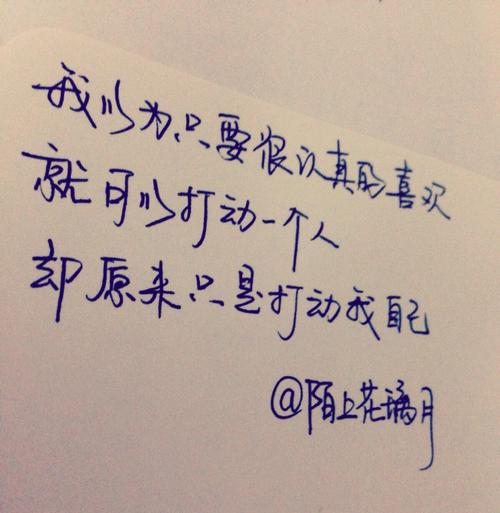 我以为只要很认真的喜欢
就可以打动一个人
却原来只是打动我自己
@陌上花璃月